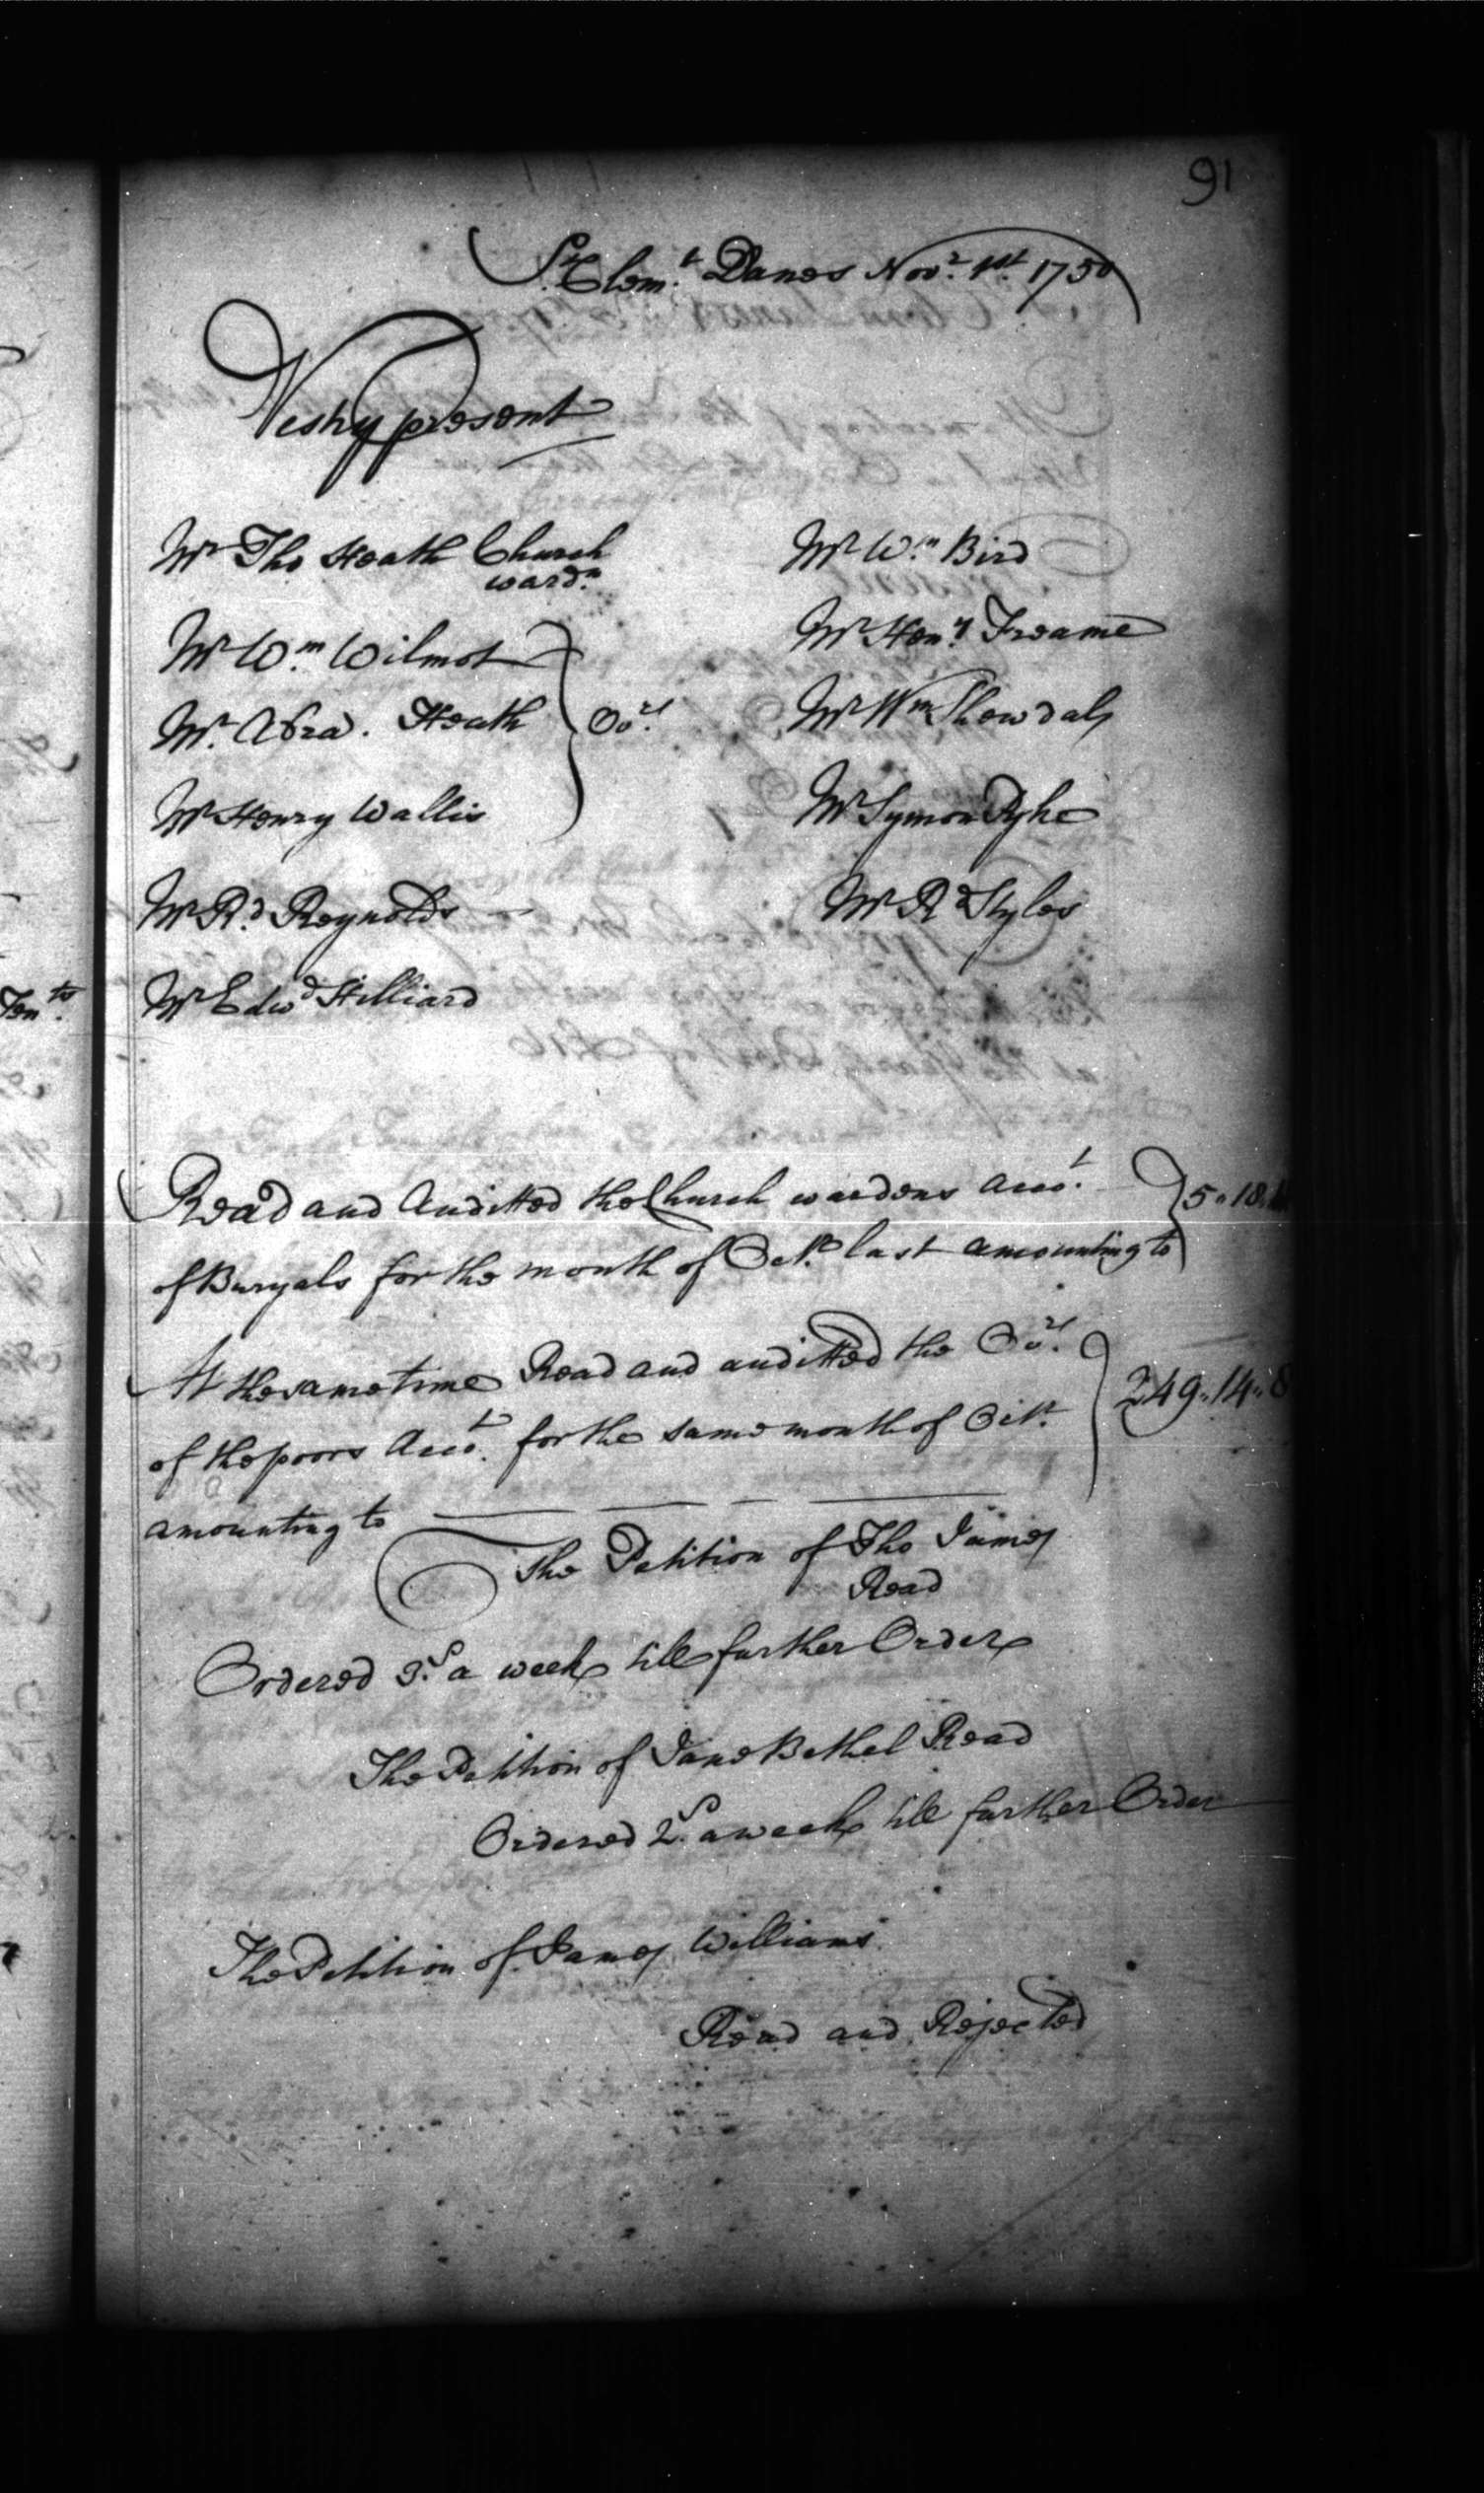 91
St. Clemt. Danes Novr. 1st. 1750
Vestry present
Mr Tho Heath Church
wardn.
Mr Wm. Wilmot
Mr. Abra. Heath
Ovrs.
Mr Henry Wallis
Mr Rd. Reynolds
Mr Edwd Hilliard
Mr Wm. Bird
Mr Heny. Freame
Mr Wm
Mr Symon Pyke
Mr Rd Styles
Read and Auditted the Church wardens Acco.t
of Buryals for the month of Octr. last amounting to
5 " 18
At the same time Read and auditted the Ovrs.
of the poors Acco.t for the same month of Octr.
amounting to
249 " 14 " 8
The Petition of Tho James
Read
Ordered 3.s a week till further Order
The Petition of Jane Bethel Read
Ordered 2.s a week till further Order
The Petition of James Williams
Read and Rejected
Ten.ts